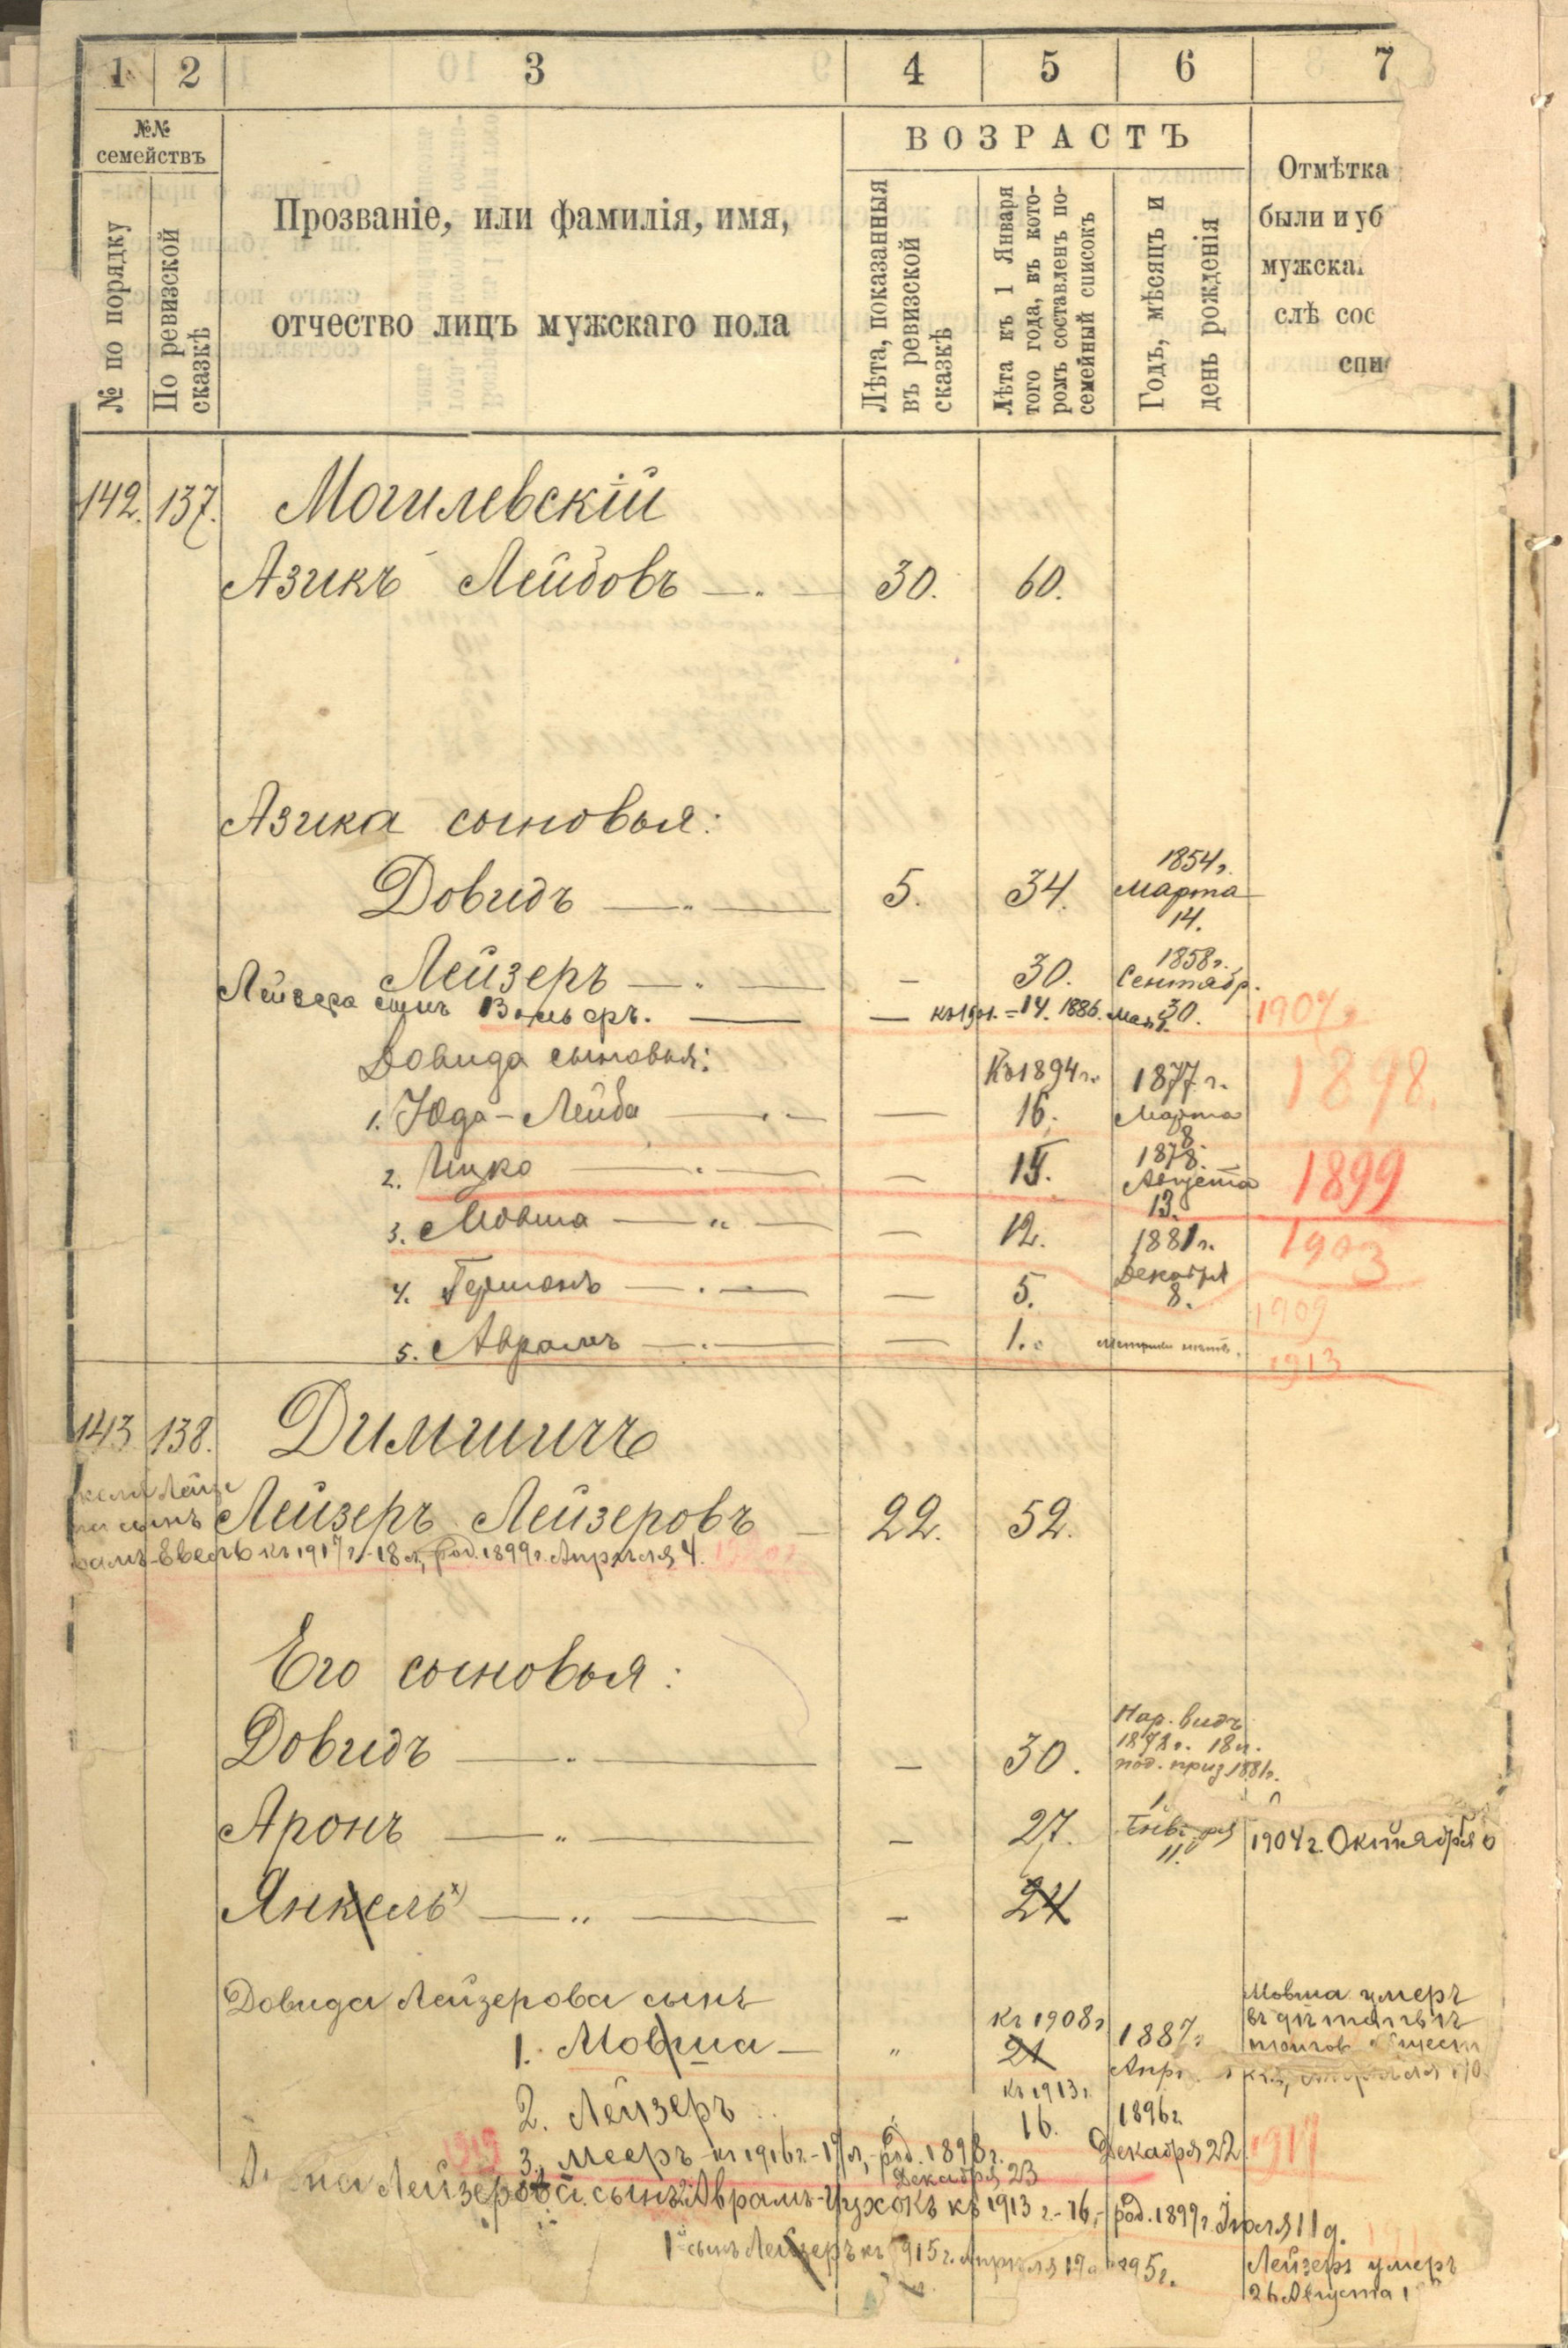 1 2 3 4 5 6 7
№№ семействъ
№ по порядку
По ревизской сказкѣ
Прозваніе, или фамилія, имя,
отчество лицъ мужскаго пола
ВОЗРАСТЪ
Лѣта, показанныя въ ревизской сказкѣ
Лѣта къ 1 Января того года, въ кото-ромъ составленъ по-семейный списокъ
Годъ, мѣсяцъ и день рожденія
Отмѣтка
были и уб
мужска
слѣ сос
спи
142. 137. Могилевскій
Азикъ Лейбовъ 30. 60.
Азика сыновья:
1854 г.
Довидъ 5. 34. Марта
14.
1858 г.
Лейзеръ — 30. Сентябр.
30.
Лейзера сынъ — къ 1901. = 14. 1886. 1907
Довида сыновья:
Къ 1894 г. 1877 г. 1898.
1. Юда-Лейба — 16. Марта
8.
1878.
2. Ицко — 15. Августа 1899
13.
3. Мовша — 12. 1881 г. 1903
Декабря
8.
4. Гершонъ — 5. 1909
5. Абрамъ — 1. Метрики нѣтъ. 1913
143 138. Димшичъ
Лейзеръ Лейзеровъ 22. 52.
сынъ
къ 1917 г. - 18 л., род. 1899 г. Апрѣля 4.
Его сыновья:
Нар. видъ
Довидъ — 30. 1878 г. 18 л.
под. приз 1881 г.
Аронъ — 27. 11. 1904 г. Октября 6
Янкель — 24
Довида Лейзерова сынъ
Мовша умеръ
къ 1908 г. 1887 г.
1. Мовша — " 21 Апр.
къ 1913 г.
2. Лейзеръ 16. 1896 г.
Декабря 22 1917
1919 3. Мееръ къ 1916 г. - 17 л., род. 1898 г.
Декабря 23
Лейзерова сынъ Абрамъ-Ицхокъ къ 1913 г. - 16, - род. 1897 г. Іюля 11 д.
1 сынъ Лейзеръ къ 1915 г. Апрѣля 17
Лейзеръ умеръ
26 Августа 1